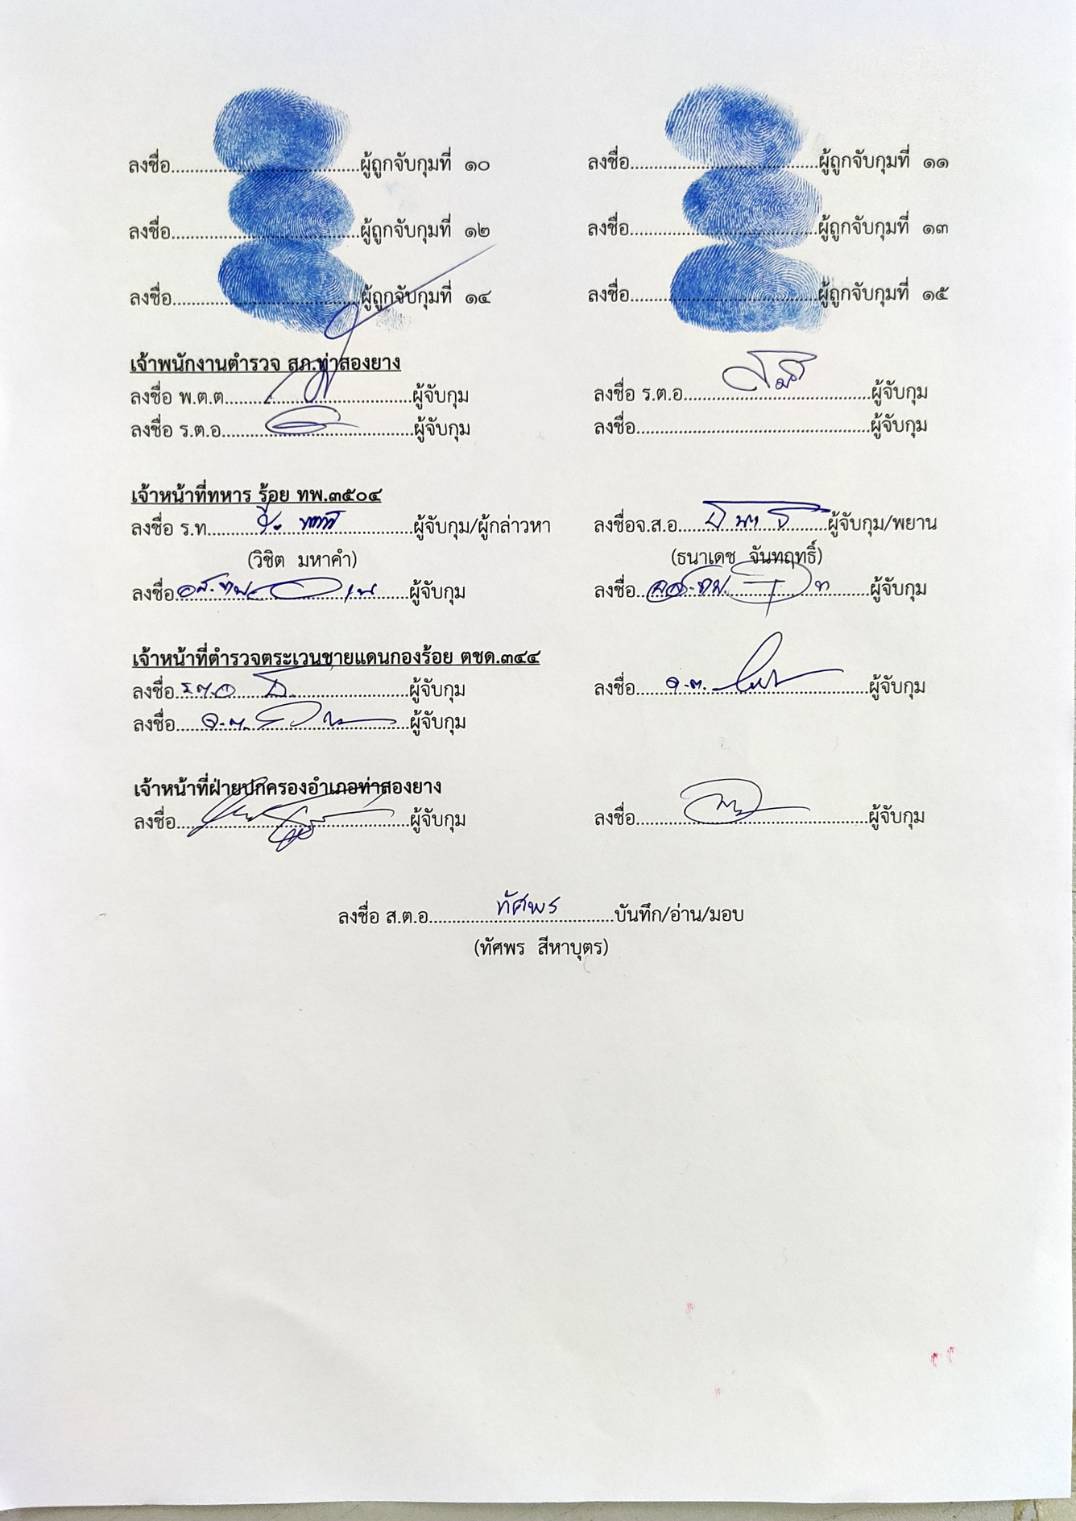 ลงชื่อ........................................ผู้ถูกจับกุมที่ ๑๐ ลงชื่อ........................................ผู้ถูกจับกุมที่ ๑๑
ลงชื่อ........................................ผู้ถูกจับกุมที่ ๑๒ ลงชื่อ........................................ผู้ถูกจับกุมที่ ๑๓
ลงชื่อ........................................ผู้ถูกจับกุมที่ ๑๔ ลงชื่อ........................................ผู้ถูกจับกุมที่ ๑๕
เจ้าพนักงานตำรวจ สภ.ท่าสองยาง
ลงชื่อ พ.ต.ต........................................ผู้จับกุม ลงชื่อ ร.ต.อ........................................ผู้จับกุม
ลงชื่อ ร.ต.อ........................................ผู้จับกุม ลงชื่อ........................................ผู้จับกุม
เจ้าหน้าที่ทหาร ร้อย ทพ.๓๕๐๔
ลงชื่อ ร.ท........................................ผู้จับกุม/ผู้กล่าวหา ลงชื่อจ.ส.อ..............................ผู้จับกุม/พยาน
(วิชิต มหาคำ) (ธนาเดช จันทฤทธิ์)
ลงชื่อ อส.ทพ........................................ผู้จับกุม ลงชื่อ อส.ทพ........................................ผู้จับกุม
เจ้าหน้าที่ตำรวจตระเวนชายแดนกองร้อย ตชด.๓๔๔
ลงชื่อ ร.ต.อ........................................ผู้จับกุม ลงชื่อ จ.ต........................................ผู้จับกุม
ลงชื่อ จ.ต........................................ผู้จับกุม
เจ้าหน้าที่ฝ่ายปกครองอำเภอท่าสองยาง
ลงชื่อ........................................ผู้จับกุม ลงชื่อ........................................ผู้จับกุม
ลงชื่อ ส.ต.อ...............ทัศพร...............บันทึก/อ่าน/มอบ
(ทัศพร สีหาบุตร)